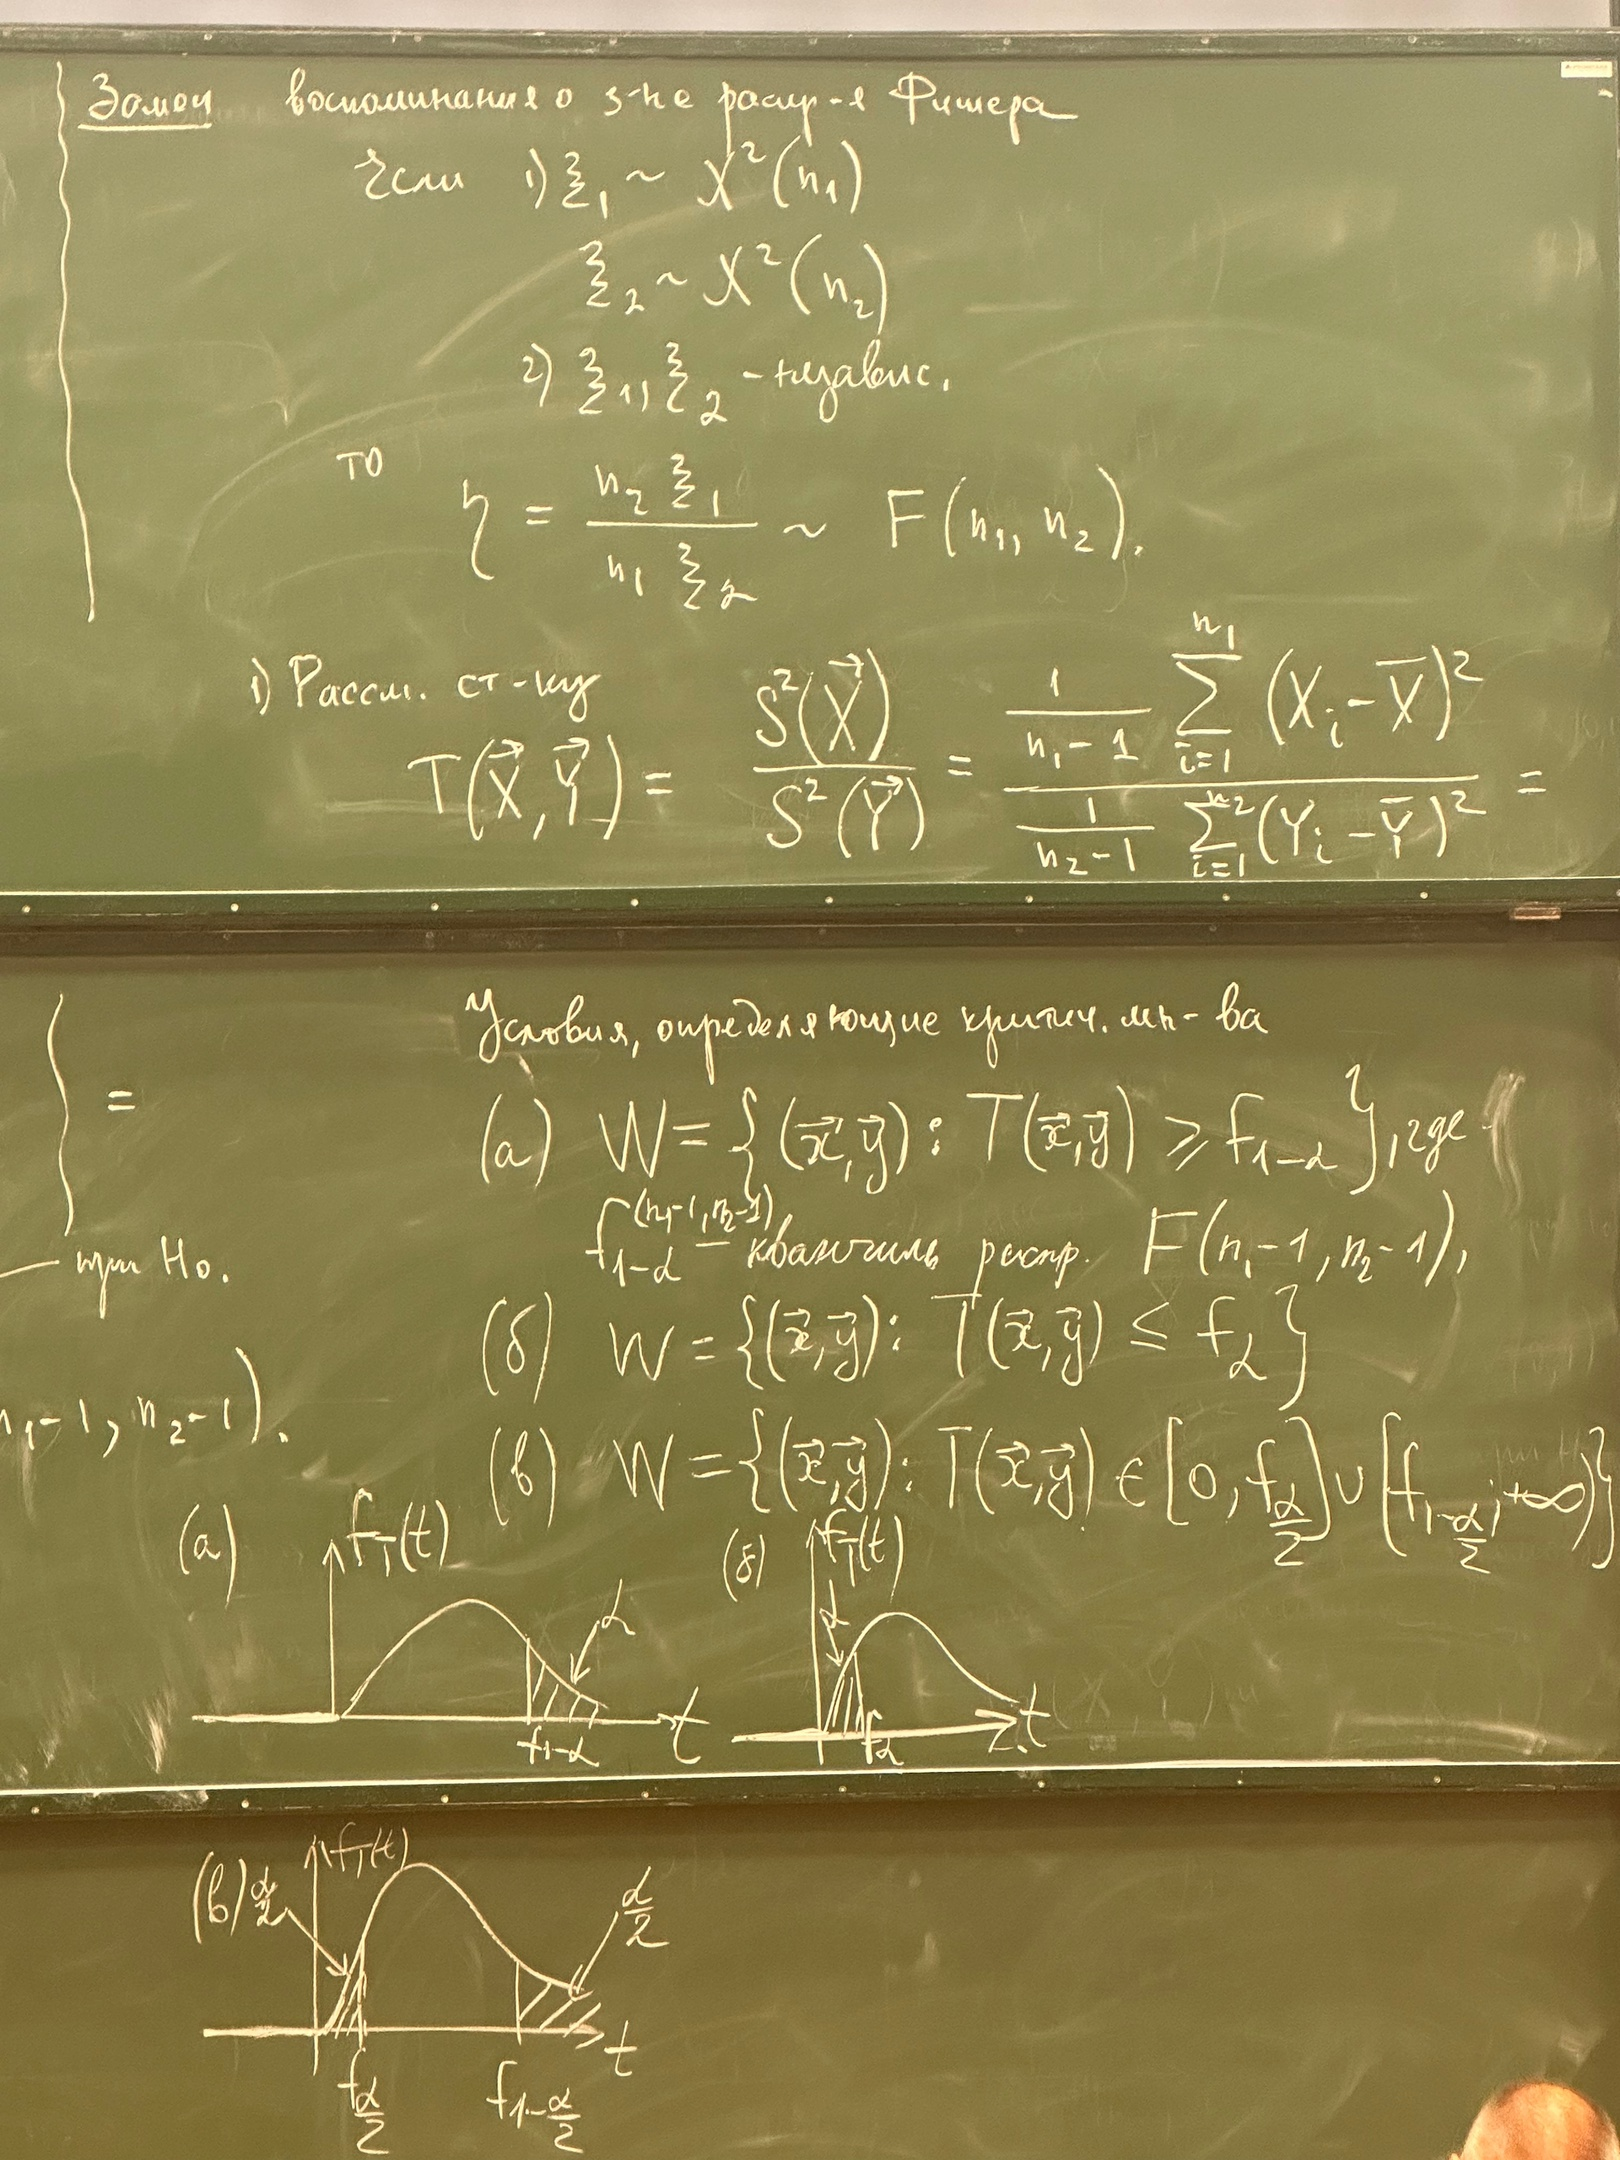 Замеч воспоминание о з-не распр-я Фишера
Если 1) ξ₁ ~ χ²(n₁)
ξ₂ ~ χ²(n₂)
2) ξ₁, ξ₂ - независ.
то
η = n₂ ξ₁ / n₁ ξ₂ ~ F(n₁, n₂).
1) Рассм. ст-ку
T(X⃗, Y⃗) = S²(X⃗) / S²(Y⃗) = (1/(n₁-1) Σ_{i=1}^{n₁} (X_i - X̄)²) / (1/(n₂-1) Σ_{i=1}^{n₂} (Y_i - Ȳ)²) =
Условия, определяющие критич. мн-ва
=
(а) W = {(x⃗, y⃗) : T(x⃗, y⃗) ≥ f_{1-α}}, где
f_{1-α}^{(n₁-1, n₂-1)} - квантиль распр. F(n₁-1, n₂-1),
при H₀.
(б) W = {(x⃗, y⃗) : T(x⃗, y⃗) ≤ f_α}
n₁-1, n₂-1).
(в) W = {(x⃗, y⃗) : T(x⃗, y⃗) ∈ [0, f_{α/2}] ∪ [f_{1-α/2}, +∞)}
(а) f_T(t)
α
f_{1-α} t
(б) f_T(t)
α
f_α t
(в) f_T(t)
α/2 α/2
t
f_{α/2} f_{1-α/2}